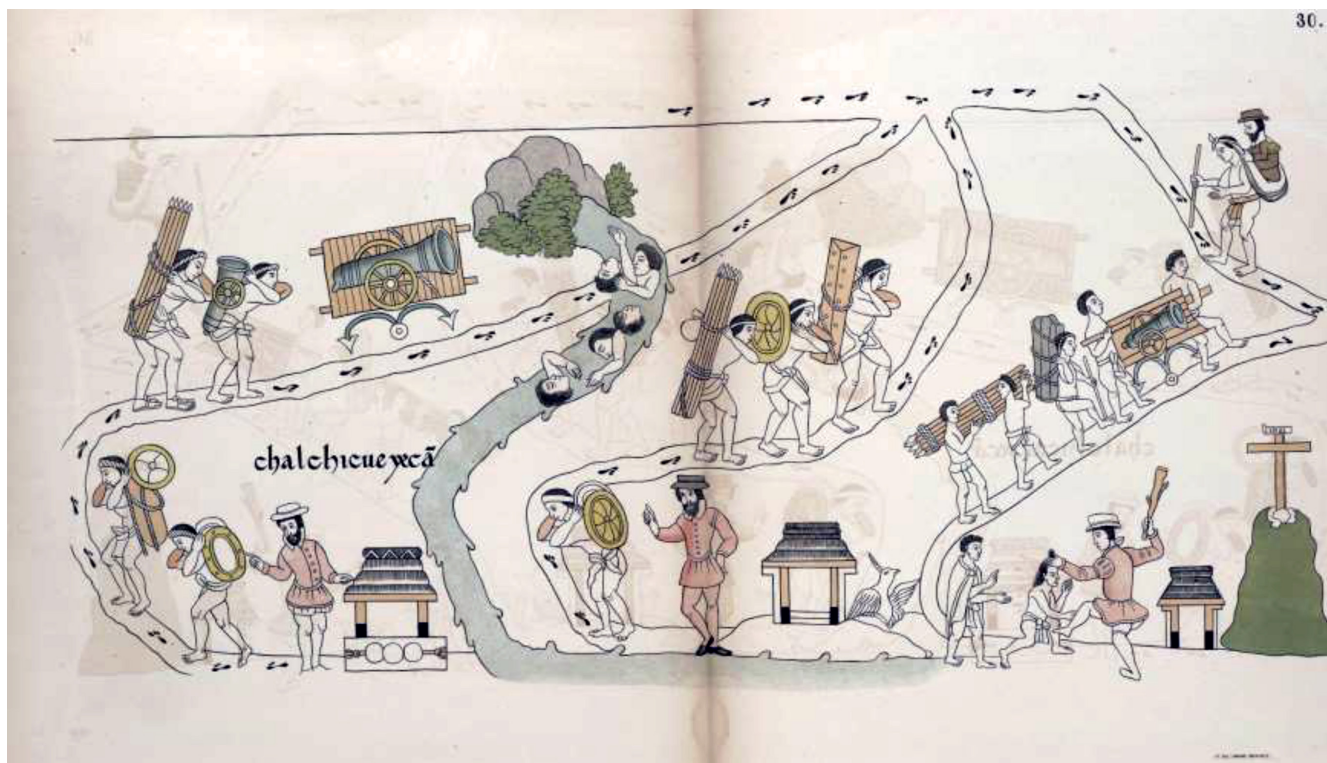 30.
chalchicueyecã